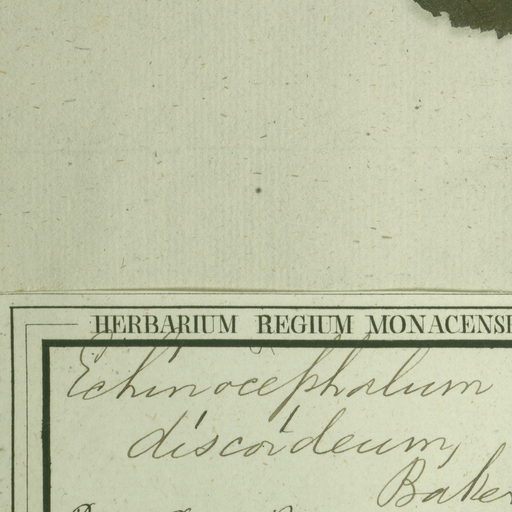 HERBARIUM REGIUM MONACENSE
Echinocephalum
discoideum,
Baker